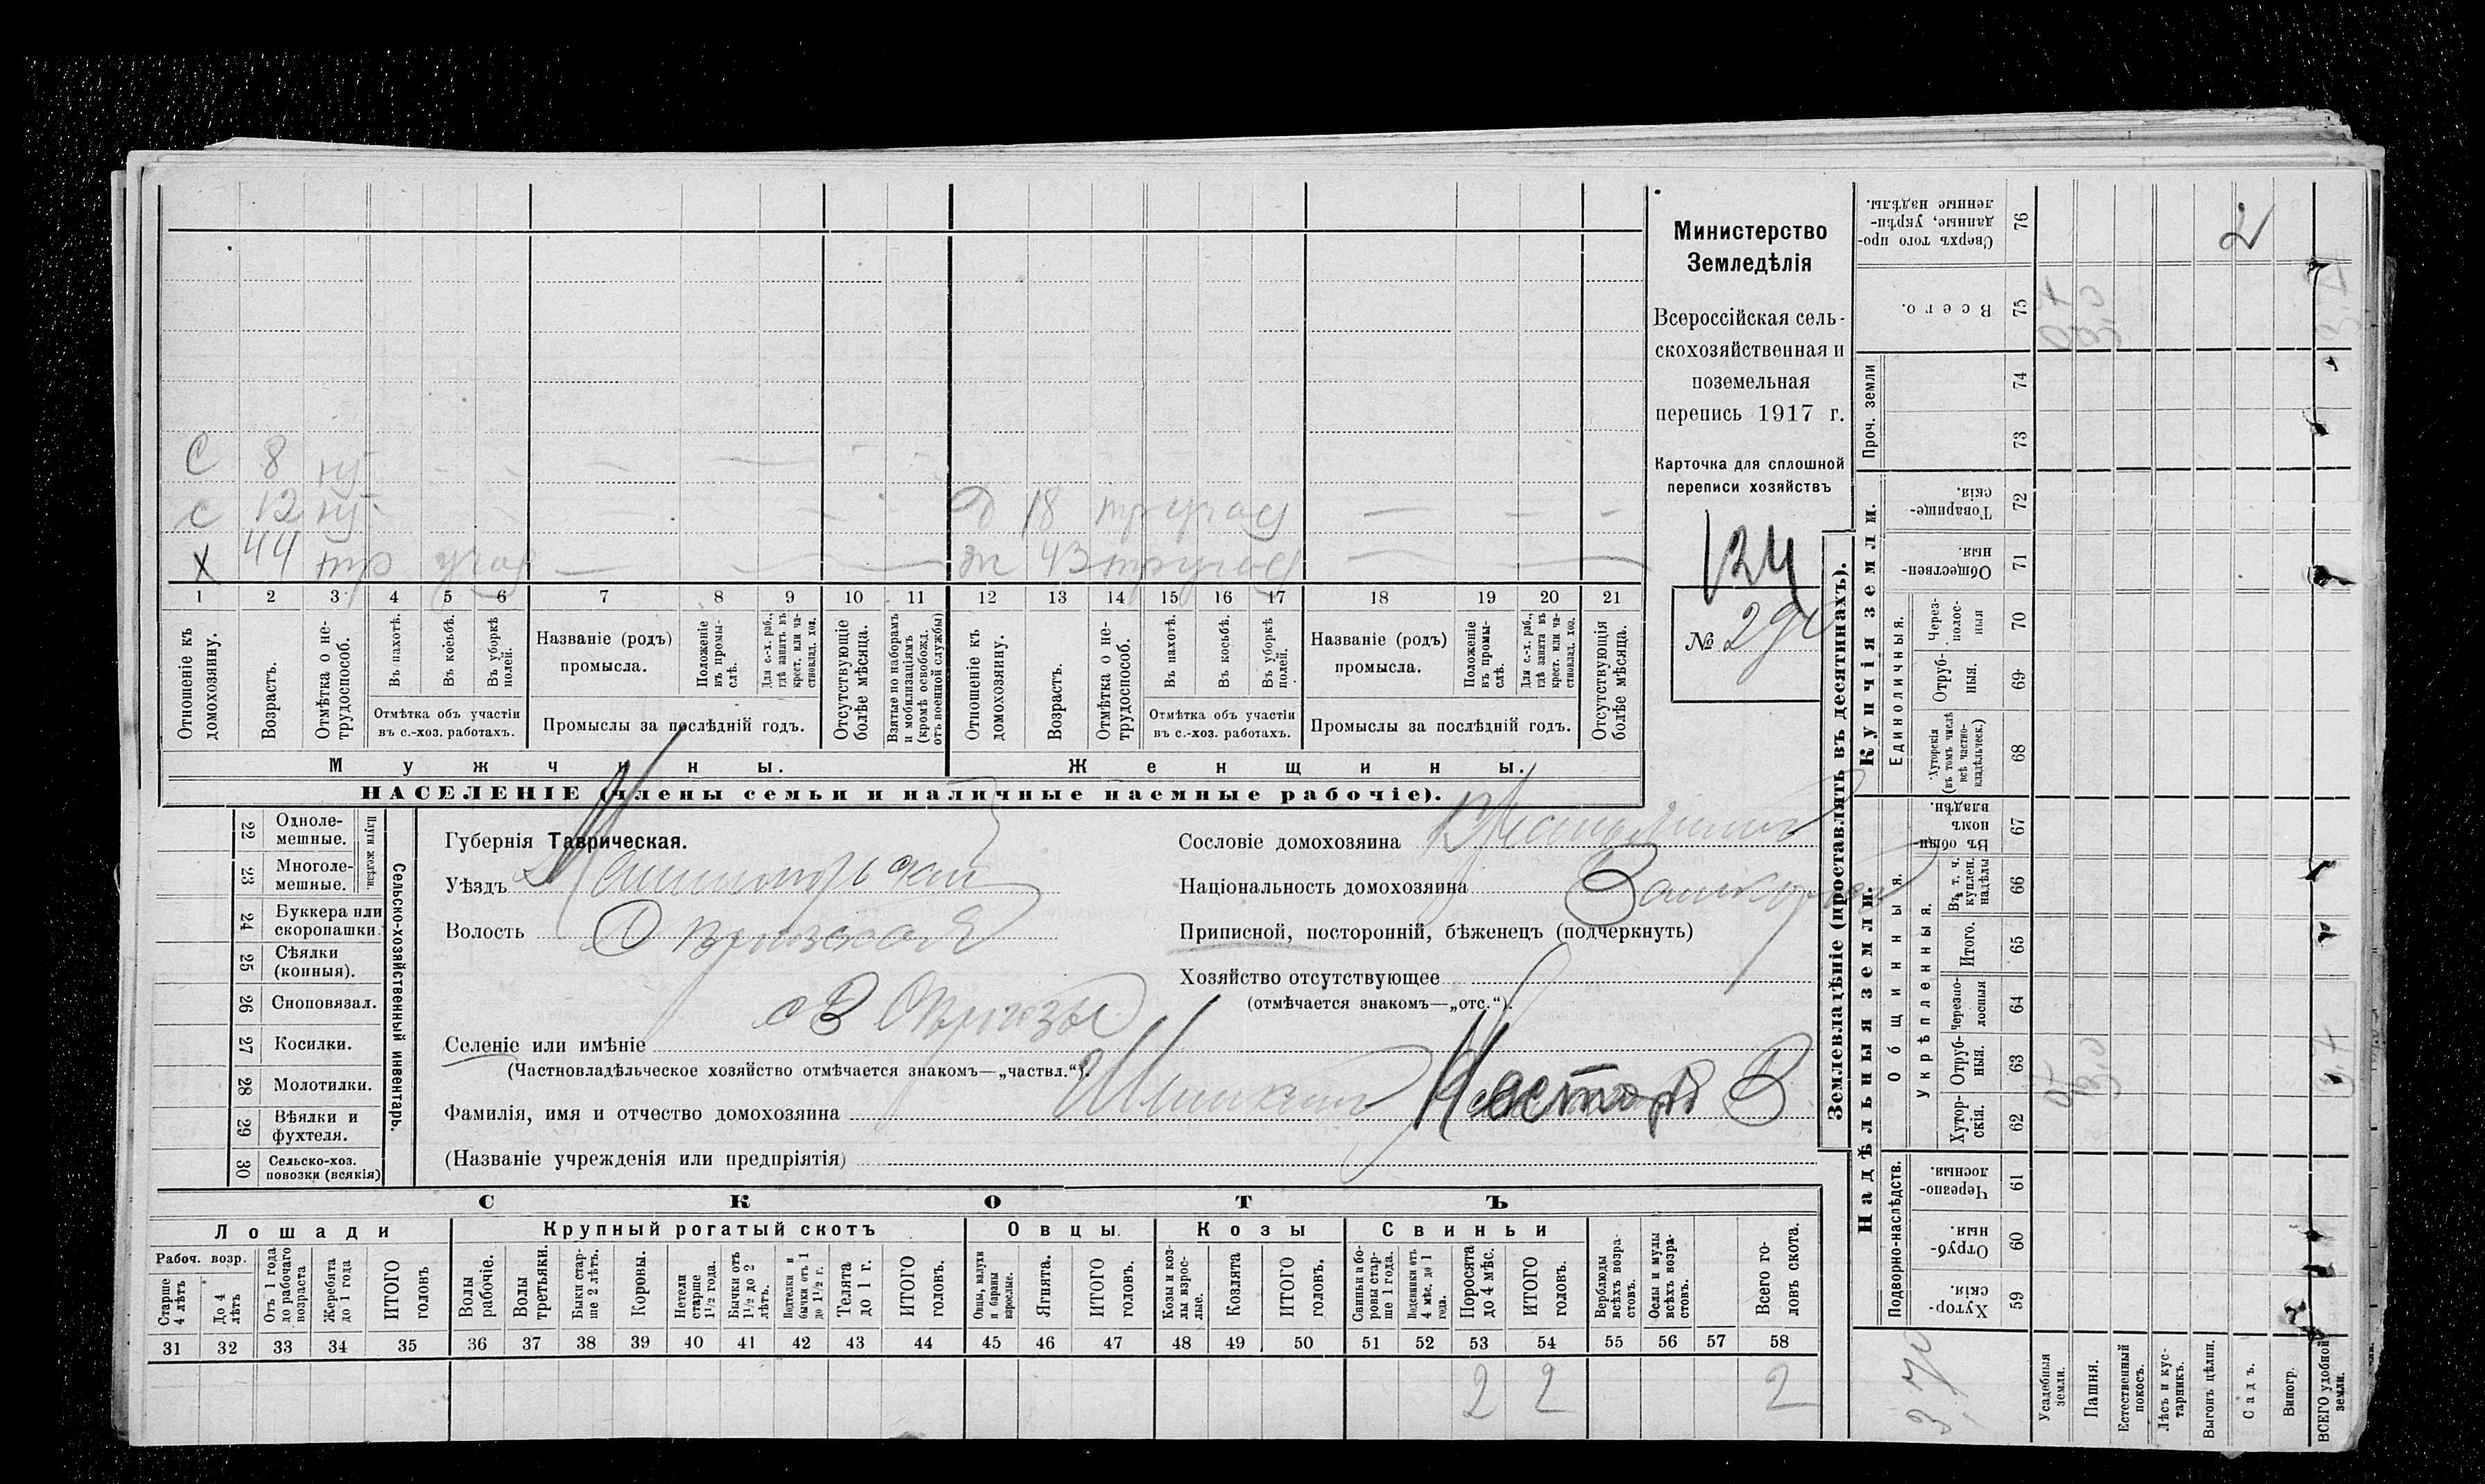 С 8 н/
С 12 н/ Д 18 тр участ
Х 44 тр участ Ж 43 тр участ
1 2 3 4 5 6 7 8 9 10 11 12 13 14 15 16 17 18 19 20 21
Отношеніе къ домохозяину.
Возрастъ.
Отмѣтка о не-трудоспособ.
Въ пахотѣ.
Въ косьбѣ.
Въ уборкѣ полей.
Отмѣтка объ участіи въ с.-хоз. работахъ.
Названіе (родъ) промысла.
Положеніе въ промы-слѣ.
Для с.-х. раб., гдѣ занятъ въ крест. или ча-стновлад. хоз.
Промыслы за послѣдній годъ.
Отсутствующіе болѣе мѣсяца.
Взятые по наборамъ и мобилизаціямъ (кромѣ освобожд. отъ военной службы)
Отношеніе къ домохозяину.
Возрастъ.
Отмѣтка о не-трудоспособ.
Въ пахотѣ.
Въ косьбѣ.
Въ уборкѣ полей.
Отмѣтка объ участіи въ с.-хоз. работахъ.
Названіе (родъ) промысла.
Положеніе въ промы-слѣ.
Для с.-х. раб., гдѣ занята въ крест. или ча-стновлад. хоз.
Промыслы за послѣдній годъ.
Отсутствующія болѣе мѣсяца.
Мужчины. Женщины.
НАСЕЛЕНІЕ (члены семьи и наличные наемные рабочіе).
Министерство
Земледѣлія
Всероссійская сель-
скохозяйственная и
поземельная
перепись 1917 г.
Карточка для сплошной
переписи хозяйствъ
124
№ 290
22 Одноле-мешные.
23 Многоле-мешные.
Плуги желѣзн.
24 Буккера или скоропашки.
25 Сѣялки (конныя).
26 Сноповязал.
27 Косилки.
28 Молотилки.
29 Вѣялки и фухтеля.
30 Сельско-хоз. повозки (всякія)
Сельско-хозяйственный инвентарь.
Губернія Таврическая.
Уѣздъ
Волость
Селеніе или имѣніе
(Частновладѣльческое хозяйство отмѣчается знакомъ—„частвл.“).
Фамилія, имя и отчество домохозяина Шишкин Несторъ В
(Названіе учрежденія или предпріятія)
Сословіе домохозяина Крестьянин
Національность домохозяина
Приписной, посторонній, бѣженецъ (подчеркнуть)
Хозяйство отсутствующее
(отмѣчается знакомъ—„отс.“).
СКОТЪ
Лошади Крупный рогатый скотъ Овцы. Козы Свиньи
Рабоч. возр.
Старше 4 лѣтъ
До 4 лѣтъ
Отъ 1 года до рабочаго возраста
Жеребята до 1 года
ИТОГО головъ
Волы рабочіе.
Волы третьяки.
Быки стар-ше 2 лѣтъ.
Коровы.
Нетели старше 1½ года.
Бычки отъ 1½ до 2 лѣтъ.
Подтелки и бычки отъ 1 до 1½ г.
Телята до 1 г.
ИТОГО головъ.
Овцы, валухи и бараны взрослые.
Ягнята.
ИТОГО головъ.
Козы и коз-лы взрос-лые.
Козлята
ИТОГО головъ.
Свиньи и бо-ровы стар-ше 1 года.
Подсвинки отъ 4 мѣс. до 1 года.
Поросята до 4 мѣс.
ИТОГО головъ.
Верблюды всѣхъ возра-стовъ.
Ослы и мулы всѣхъ возра-стовъ.
Всего го-ловъ скота.
31 32 33 34 35 36 37 38 39 40 41 42 43 44 45 46 47 48 49 50 51 52 53 54 55 56 57 58
2 2 2
Землевладѣніе (проставлять въ десятинахъ).
Купчія земли.
Надѣльныя земли.
Сверхъ того про-данные, укрѣп-ленные надѣлы. 76 2
Всего. 75
Проч. земли 74 73
Товарище-скія. 72
Обществен-ныя. 71
Единоличныя.
Через-полос-ныя 70
Отруб-ныя. 69
Хуторскія (въ томъ числѣ всѣ частно-владѣльческ.) 68
Общинныя.
Въ общи-номъ владѣн. 67
Укрѣпленныя.
Въ т. ч. куплен. надѣлы 66
Итого. 65
Черезпо-лосныя 64
Отруб-ныя. 63
Хутор-скія. 62
Подворно-наслѣдств.
Черезпо-лосныя. 61
Отруб-ныя. 60
Хутор-скія. 59
Усадебныя земли.
Пашня.
Естественный покосъ.
Лѣсъ и кус-тарникъ.
Выгонъ цѣлин.
Садъ.
Виногр.
ВСЕГО удобной земли.